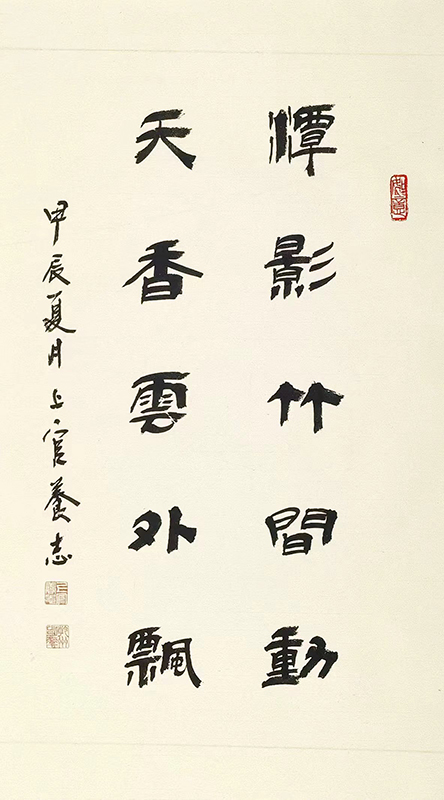 潭影竹間動
天香雲外飄
甲辰夏月上官養志